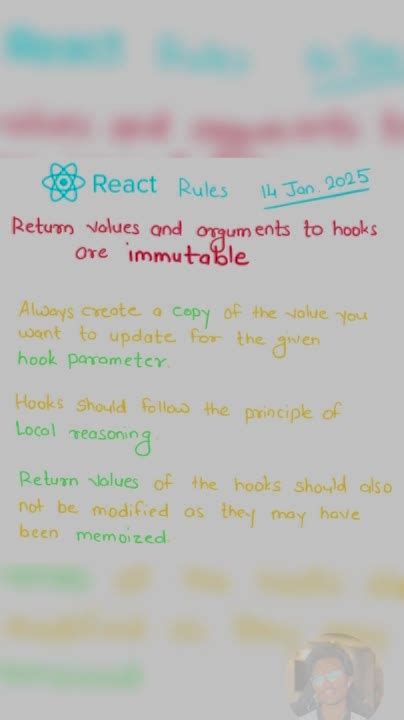 React Rules 14 Jan. 2025
Return values and arguments to hooks
are immutable
Always create a copy of the value you
want to update for the given
hook parameter.
Hooks should follow the principle of
Local reasoning.
Return values of the hooks should also
not be modified as they may have
been memoized.